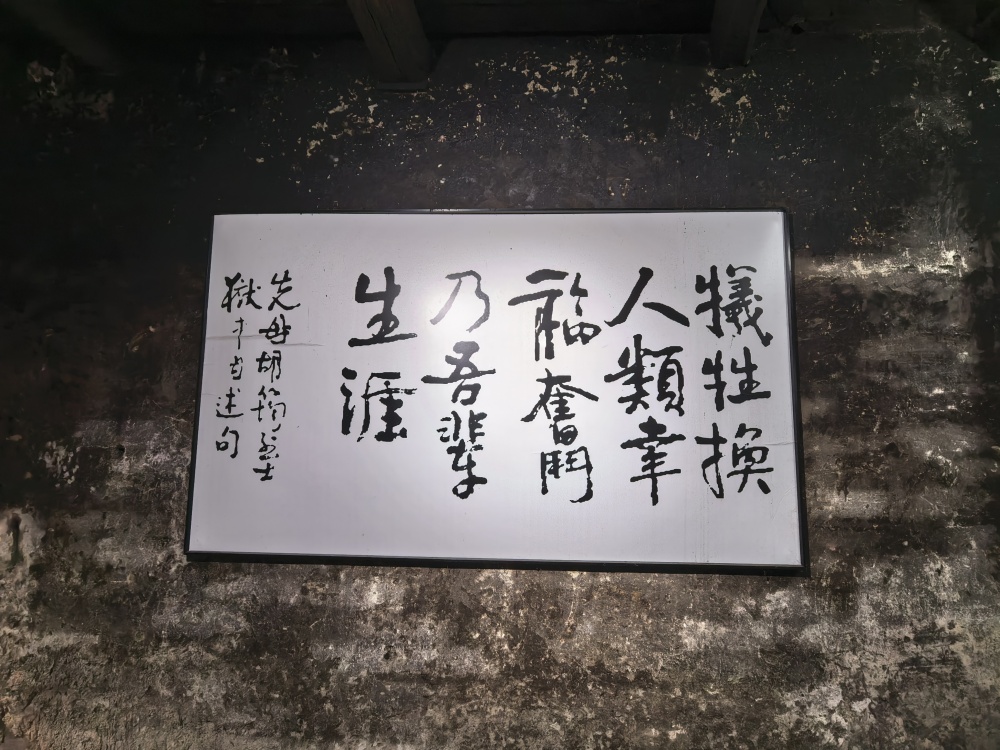 犧牲換
人類幸
福奮鬥
乃吾輩
生涯
先母胡筠烈士
獄中自述句